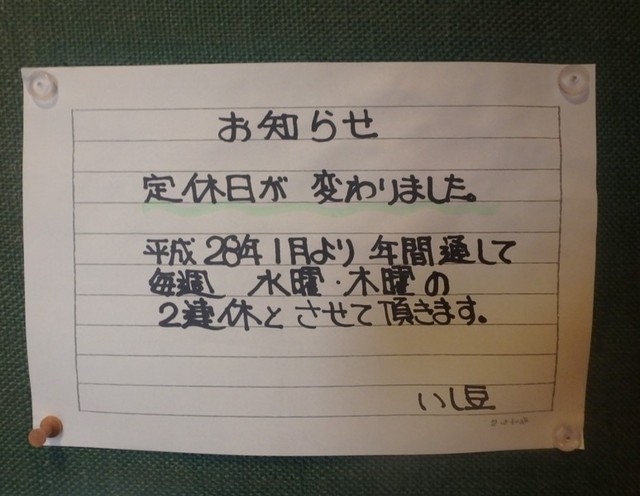 お知らせ
定休日が 変わりました。
平成28年1月より 年間通して
毎週 水曜・木曜の
2連休と させて頂きます。
いし豆